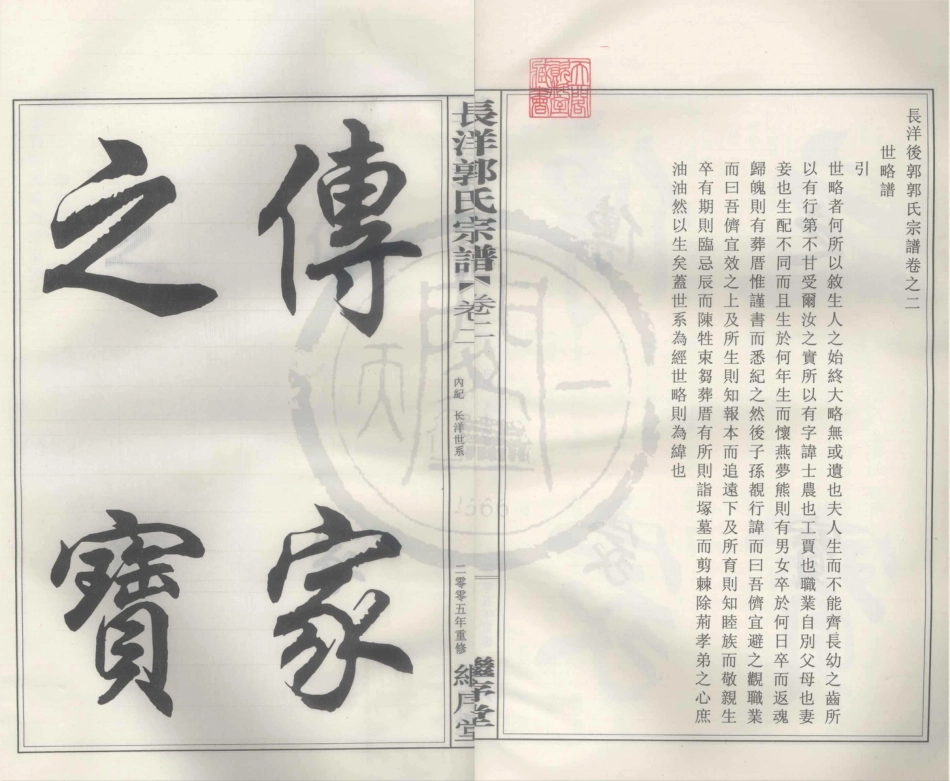 長洋後郭郭氏宗譜卷之二
世略譜
引
世略者何所以敘生人之始終大略無或遺也夫人生而不能齊長幼之齒所
以有行第不甘受爾汝之實所以有字諱士農也工賈也職業自別父母也妻
妾也生配不同而且生於何年生而懷燕夢熊則有男女卒於何日卒而返魂
歸魄則有葬厝惟謹書而悉紀之然後子孫覩行諱而曰吾儕宜避之觀職業
而曰吾儕宜效之上及所生則知報本而追遠下及所育則知睦族而敬親生
卒有期則臨忌辰而陳牲束芻葬厝有所則詣塚墓而剪棘除荊孝弟之心庶
油油然以生矣蓋世系為經世略則為緯也
長洋郭氏宗譜【卷二
內紀 长洋世系
二零零五年重修
繼序堂
傳家
之寶